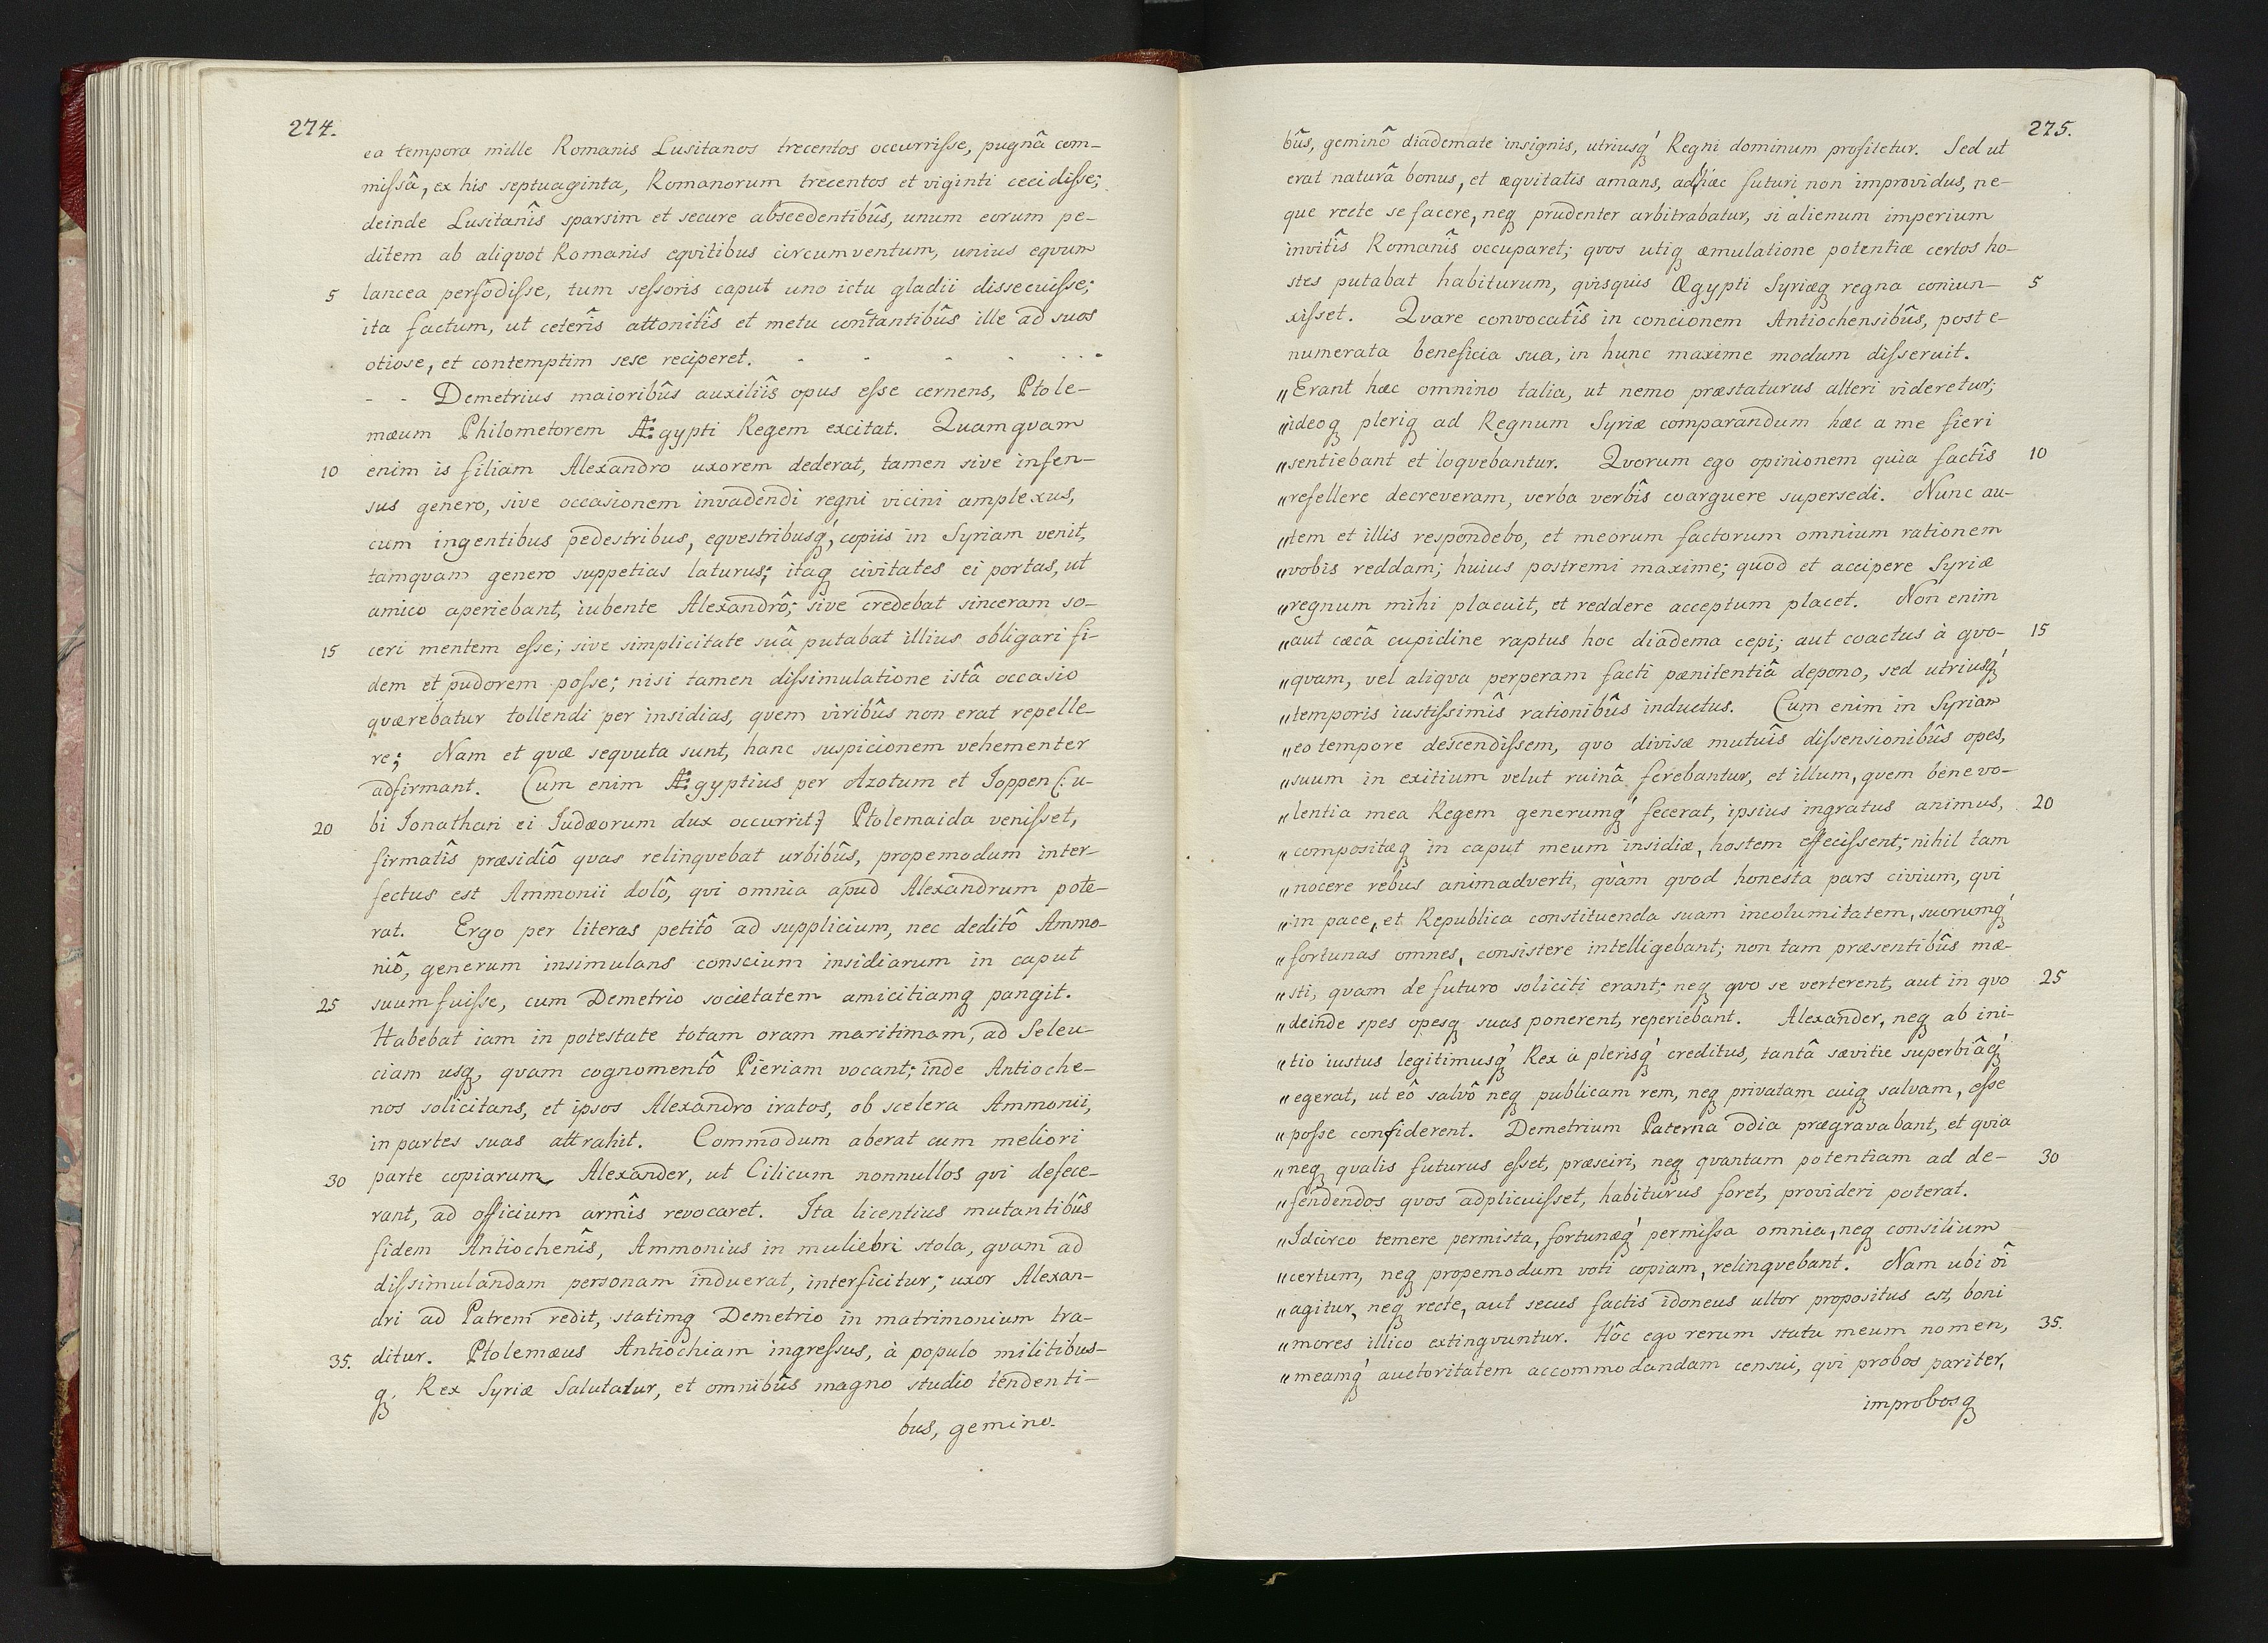 274.
ea tempora mille Romanis Lusitanos trecentos occurrisse, pugnâ com-
missâ, ex his septuaginta, Romanorum trecentos et viginti cecidisse;
deinde Lusitanîs sparsim et secure abscedentibûs, unum eorum pe-
ditem ab aliqvot Romanis eqvitibus circumventum, unius eqvum
5 lancea perfodisse, tum sessoris caput uno ictu gladii dissecuisse;
ita factum, ut ceterîs attonitîs et metu contantibûs ille ad suos
otiose, et contemptim sese reciperet. - - - - . . .
- - Demetrius maioribûs auxiliîs opus esse cernens, Ptole-
mæum Philometorem Ægypti Regem excitat. Quamqvam
10 enim is filiam Alexandro uxorem dederat, tamen sive infen-
sus genero, sive occasionem invadendi regni vicini amplexus,
cum ingentibus pedestribus, eqvestribusq́, copiis in Syriam venit,
tamqvam genero suppetias laturus; itaq civitates ei portas, ut
amico aperiebant, iubente Alexandrô; sive credebat sinceram so-
15 ceri mentem esse; sive simplicitate suâ putabat illius obligari fi-
dem et pudorem posse; nisi tamen dissimulatione istâ occasio
qværebatur tollendi per insidias, qvem viribûs non erat repelle-
re; Nam et qvæ seqvuta sunt, hanc suspicionem vehementer
adfirmant. Cum enim Ægyptius per Azotum et Joppen (: u-
20 bi Jonathan ei Judæorum dux occurrit:) Ptolemaida venisset,
firmatîs præsidiô qvas relinqvebat urbibûs, propemodum inter-
fectus est Ammonii dolô, qvi omnia apud Alexandrum pote-
rat. Ergo per literas petitô ad supplicium, nec deditô Ammo-
niô, generum insimulans conscium insidiarum in caput
25 suum fuisse, cum Demetrio societatem amicitiamq pangit.
Habebat iam in potestate totam oram maritimam, ad Seleu-
ciam usq, qvam cognomentô Pieriam vocant; inde Antioche-
nos solicitans, et ipsos Alexandro iratos, ob scelera Ammonii,
in partes suas attrahit. Commodum aberat cum meliori
30 parte copiarum Alexander, ut Cilicum nonnullos qvi defece-
rant, ad officium armîs revocaret. Ita licentius mutantibûs
fidem Antiochenîs, Ammonius in muliebri stola, qvam ad
dissimulandam personam induerat, interficitur; uxor Alexan-
dri ad Patrem redit, statimq Demetrio in matrimonium tra-
35. ditur. Ptolemæus Antiochiam ingressus, à populo militibus-
q. Rex Syriæ Salutatur, et omnibûs magno studio tendenti-
bus, gemino.
275.
bûs, geminô diademate insignis, utriusq́ Regni dominum profitetur. Sed ut
erat naturâ bonus, et æqvitatis amans, adhæc futuri non improvidus, ne-
que recte se facere, neq prudenter arbitrabatur, si alienum imperium
invitîs Romanîs occuparet; qvos utiq æmulatione potentiæ certos ho-
stes putabat habiturum, qvisquis Ægypti Syriæq regna coniun- 5
xisset. Qvare convocatîs in concionem Antiochensibûs, post e-
numerata beneficia sua, in hunc maxime modum disseruit.
„Erant hæc omnino talia, ut nemo præstaturus alteri videretur;
„ideoq pleriq ad Regnum Syriæ comparandum hæc a me fieri
„sentiebant et loqvebantur. Qvorum ego opinionem quia factîs 10
„refellere decreveram, verba verbîs coarguere supersedi. Nunc au-
„tem et illis respondebo, et meorum factorum omnium rationem
„vobis reddam; huius postremi maxime; quod et accipere Syriæ
„regnum mihi placuit, et reddere acceptum placet. Non enim
„aut cæcâ cupidine raptus hoc diadema cepi; aut coactus à qvo- 15
„qvam, vel aliqva perperam facti pænitentiâ depono, sed utriusq́
„temporis iustissimîs rationibûs inductus. Cum enim in Syriam
„eo tempore descendissem, qvo divisæ mutuîs dissensionibûs opes,
„suum in exitium velut ruinâ ferebantur, et illum, qvem benevo-
„lentia mea Regem generumq́ fecerat, ipsius ingratus animus, 20
„compositæq in caput meum insidiæ, hostem effecissent; nihil tam
„nocere rebus animadverti, qvàm qvod honesta pars civium, qvi
„in pace, et Republica constituenda suam incolumitatem, suorumq́
„fortunas omnes, consistere intelligebant; non tam præsentibûs mæ-
„sti, qvam de futuro soliciti erant; neq qvo se verterent, aut in qvo 25
„deinde spes opesq suas ponerent, reperiebant. Alexander, neq ab ini-
„tio iustus legitimusq́ Rex à plerisq́ creditus, tantâ sævitie superbiâq́
„egerat, ut eô salvô neq publicam rem, neq privatam cuiq salvam, esse
„posse confiderent. Demetrium Paterna odia prægravabant, et qvia
„neq qvalis futurus esset, præsciri, neq qvantam potentiam ad de- 30
„fendendos qvos adplicuisset, habiturus foret, provideri poterat.
„Idcirco temere permista, fortunæq́ permissa omnia, neq consilium
„certum, neq propemodum voti copiam, relinqvebant. Nam ubi vî
„agitur, neq recte, aut secus factis idoneus ultor propositus est, boni
„mores illico extingvuntur. Hôc ego rerum statu meum nomen, 35.
„meamq́ auctoritatem accommodandam censui, qvi probos pariter,
improbosq